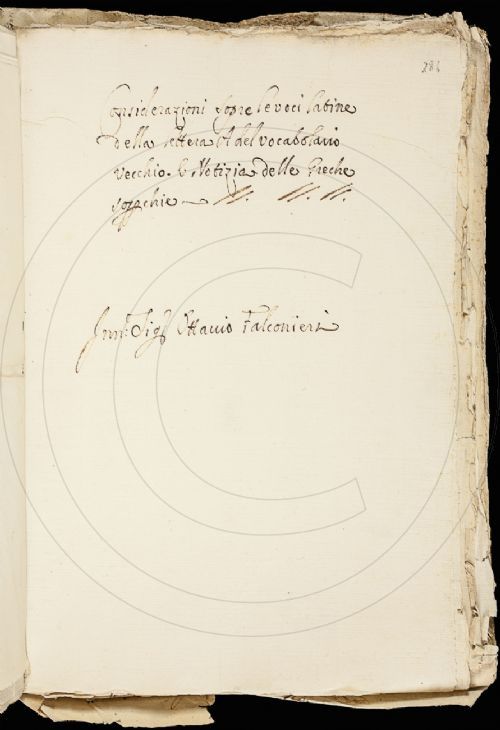 Considerazioni sopra le voci latine
della lettera M del vocabolario
vecchio. e Notizia delle Greche
Inn.º Sig.r Ottavio Falconieri